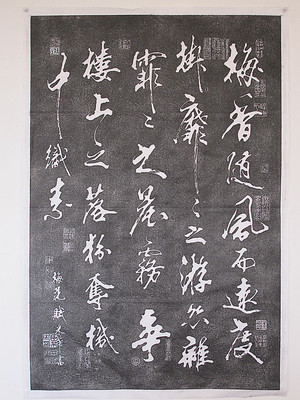 梅香随風而遠度
掛靡〻之游絲雜
霏〻之晨霧爭
樓上之落粉奪機
中織素
梅花賦